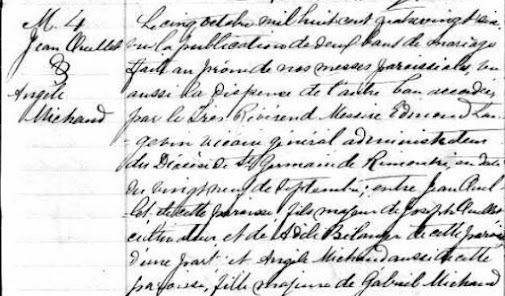 M. 4
Jean Ouellet
&
Angèle
Michaud
Le cinq octobre mil huit cent quatre vingt six
vu la publication de deux bans de mariage
faite au prône de nos messes paroissiales, vu
aussi la dispense de l'autre ban accordée
par le Très Révérend Messire Edmond Lan-
gevin vicaire général administrateur
du Diocèse de St Germain de Rimouski, en date
du vingt neuf de Septembre; entre Jean Ouel-
let de cette paroisse, fils majeur de Joseph Ouellet
cultivateur et de Adèle Bélanger de cette paroisse
d'une part et Angèle Michaud aussi de cette
paroisse, fille majeure de Gabriel Michaud